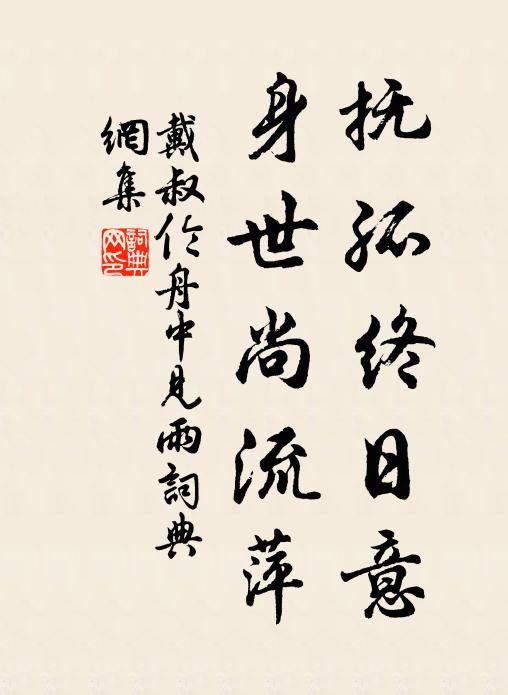 抚孤终日意
身世尚流萍
戴叔伦舟中見雨詞典
網集
詞典网印